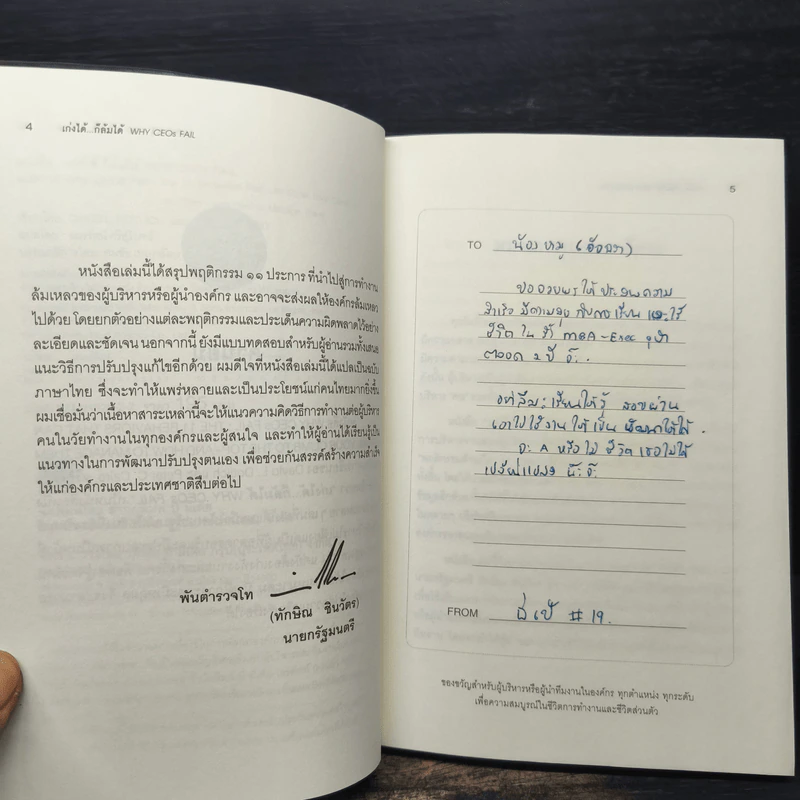 4 เก่งได้...ก็ล้มได้ WHY CEOs FAIL
หนังสือเล่มนี้ได้สรุปพฤติกรรม ๑๑ ประการ ที่นำไปสู่การทำงาน
ล้มเหลวของผู้บริหารหรือผู้นำองค์กร และอาจจะส่งผลให้องค์กรล้มเหลว
ไปด้วย โดยยกตัวอย่างแต่ละพฤติกรรมและประเด็นความผิดพลาดไว้อย่าง
ละเอียดและชัดเจน นอกจากนี้ ยังมีแบบทดสอบสำหรับผู้อ่านรวมทั้งเสนอ
แนะวิธีการปรับปรุงแก้ไขอีกด้วย ผมดีใจที่หนังสือเล่มนี้ได้แปลเป็นฉบับ
ภาษาไทย ซึ่งจะทำให้แพร่หลายและเป็นประโยชน์แก่คนไทยมากยิ่งขึ้น
ผมเชื่อมั่นว่าเนื้อหาสาระเหล่านี้จะให้แนวความคิดวิธีการทำงานต่อผู้บริหาร
คนในวัยทำงานในทุกองค์กรและผู้สนใจ และทำให้ผู้อ่านได้เรียนรู้เป็น
แนวทางในการพัฒนาปรับปรุงตนเอง เพื่อช่วยกันสรรค์สร้างความสำเร็จ
ให้แก่องค์กรและประเทศชาติสืบต่อไป
พันตำรวจโท
(ทักษิณ ชินวัตร)
นายกรัฐมนตรี
5
TO น้อง
ขออวยพรให้ประสบความ
สำเร็จ มีความสุข กับการเรียน และใช้
ชีวิต ใน รั้ว MBA-Exec จุฬา
ตลอด 2 ปี
อย่าลืม : เรียนให้รู้ สอบผ่าน
เอาไปใช้งาน ให้ เป็น
จะ A หรือไม่ ชีวิต เธอไม่ได้
เปลี่ยนแปลง
FROM #19.
ของขวัญสำหรับผู้บริหารหรือผู้นำทีมงานในองค์กร ทุกตำแหน่ง ทุกระดับ
เพื่อความสมบูรณ์ในชีวิตการทำงานและชีวิตส่วนตัว